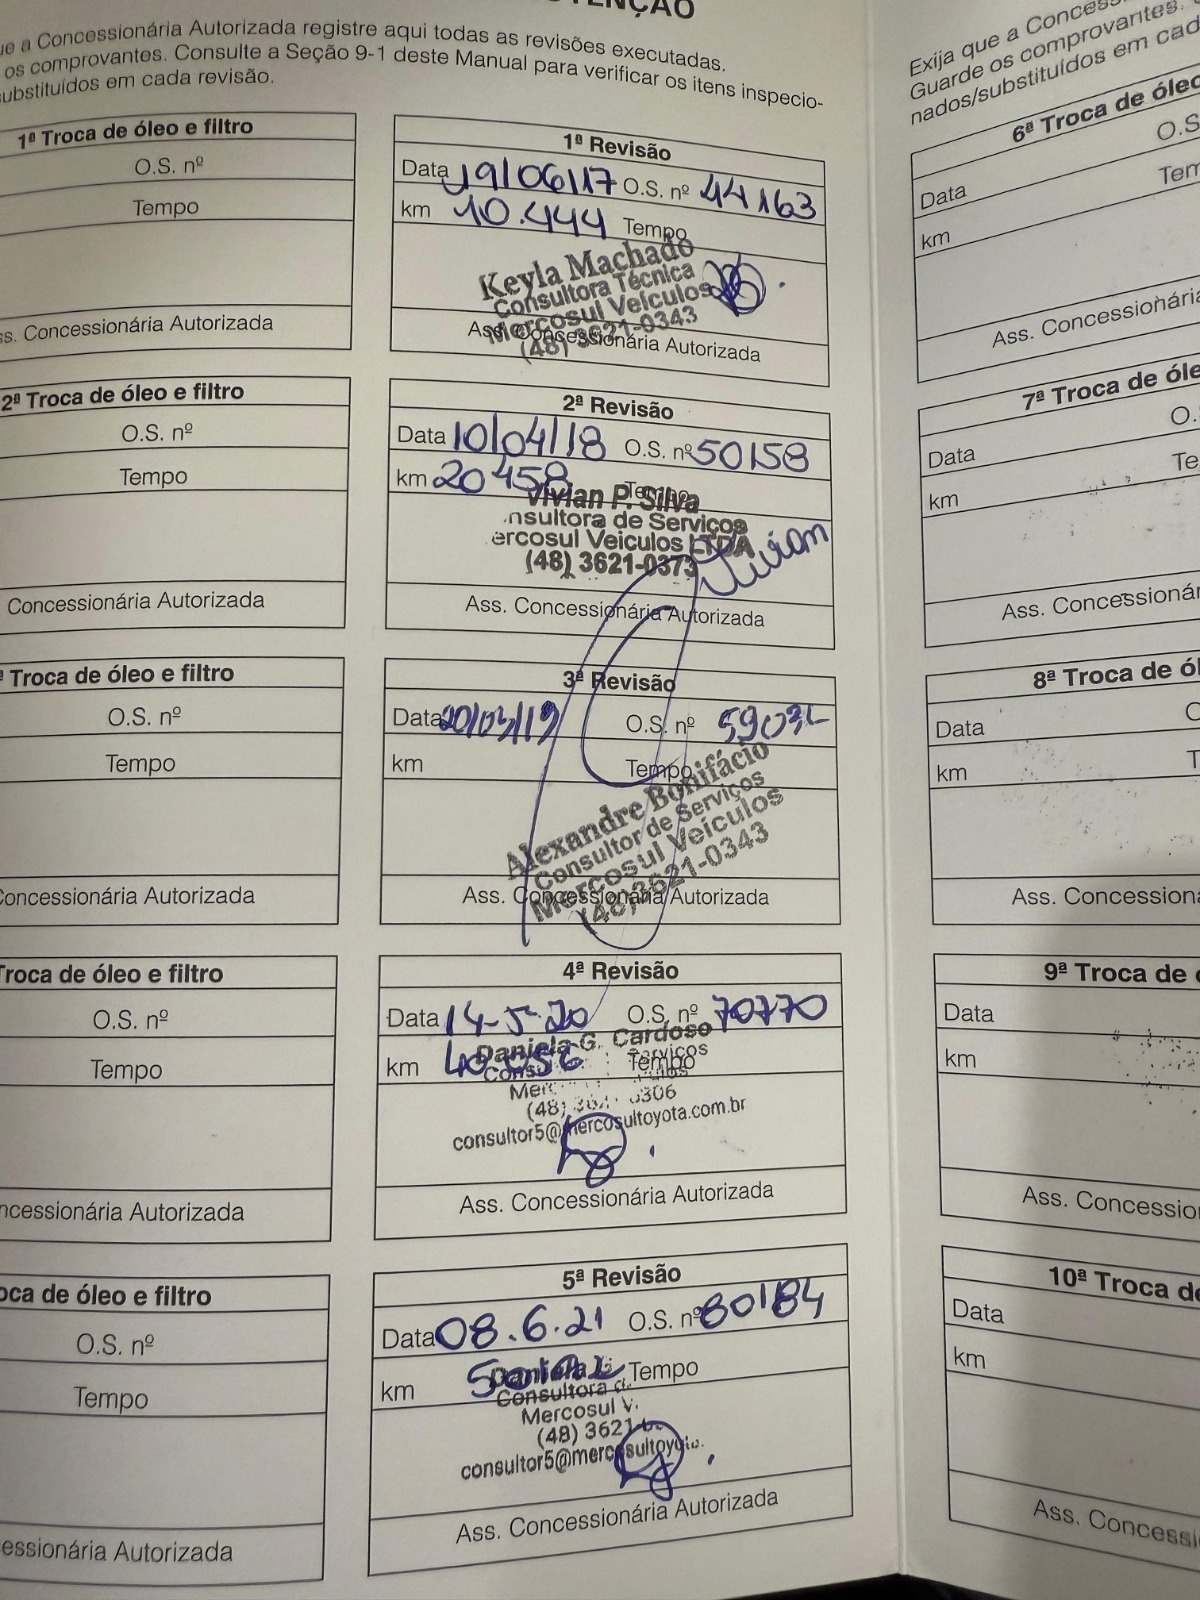 TENÇÃO
ue a Concessionária Autorizada registre aqui todas as revisões executadas.
os comprovantes. Consulte a Seção 9-1 deste Manual para verificar os itens inspecio-
ubstituídos em cada revisão.
1ª Troca de óleo e filtro
O.S. nº
Tempo
ss. Concessionária Autorizada
2ª Troca de óleo e filtro
O.S. nº
Tempo
Concessionária Autorizada
ª Troca de óleo e filtro
O.S. nº
Tempo
Concessionária Autorizada
Troca de óleo e filtro
O.S. nº
Tempo
ncessionária Autorizada
oca de óleo e filtro
O.S. nº
Tempo
essionária Autorizada
1ª Revisão
Data 19/06/17 O.S. nº 44163
km 10.444 Tempo
Keyla Machado
Consultora Técnica
Mercosul Veículos
(48) 3621-0343
Ass. Concessionária Autorizada
2ª Revisão
Data 10/04/18 O.S. nº 50158
km 20458 Tempo
Vivian P. Silva
nsultora de Serviços
ercosul Veiculos LTDA
(48) 3621-0373
Vivian
Ass. Concessionária Autorizada
3ª Revisão
Data 20/03/19 O.S. nº
km Tempo
Alexandre Bonifácio
Consultor de Serviços
Mercosul Veículos
(48) 3621-0343
Ass. Concessionária Autorizada
4ª Revisão
Data 14-5-20 O.S. nº 70770
km 40 056 Tempo
Daniela G. Cardoso
Cons Serviços
Mer
(48) 0306
consultor5@mercosultoyota.com.br
Ass. Concessionária Autorizada
5ª Revisão
Data 08.6.21 O.S. nº 80184
km Tempo
Daniela
Consultora d
Mercosul V.
(48) 3621
consultor5@mercosultoyota.
Ass. Concessionária Autorizada
Exija que a Concess
Guarde os comprovantes.
nados/substituídos em cad
6ª Troca de óleo
O.S
Data
Tem
km
Ass. Concessionária
7ª Troca de óle
O.
Data
Te
km
Ass. Concessionár
8ª Troca de ól
Data
km
Ass. Concessionár
9ª Troca de
Data
km
Ass. Concession
10ª Troca de
Data
km
Ass. Concessi